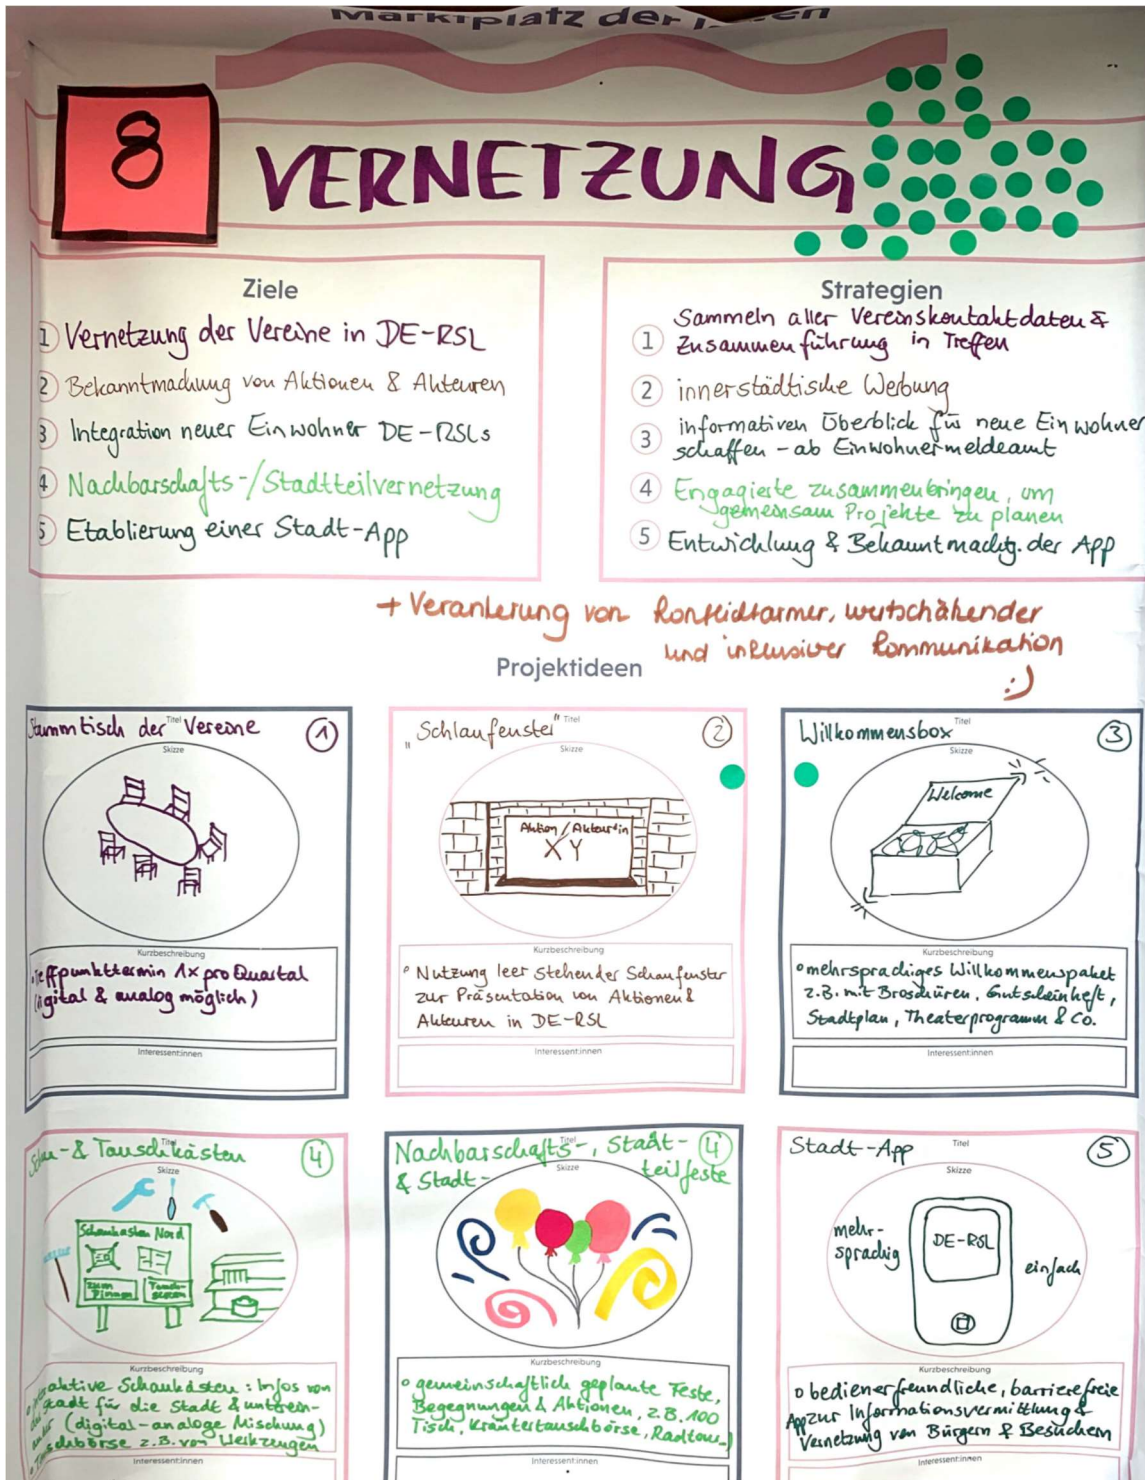 Marktplatz der Ideen
8
VERNETZUNG
Ziele
1 Vernetzung der Vereine in DE-RSL
2 Bekanntmachung von Aktionen & Akteuren
3 Integration neuer Einwohner DE-RSLs
4 Nachbarschafts-/Stadtteilvernetzung
5 Etablierung einer Stadt-App
Strategien
1 Sammeln aller Vereinskontaktdaten &
Zusammenführung in Treffen
2 innerstädtische Werbung
3 informativen Überblick für neue Einwohner
schaffen - ab Einwohnermeldeamt
4 Engagierte zusammenbringen, um
gemeinsam Projekte zu planen
5 Entwicklung & Bekanntmachg. der App
+ Verankerung von konfliktarmer, wertschätzender
und inklusiver Kommunikation
:)
Projektideen
Stammtisch der Vereine
Titel
1
Skizze
Kurzbeschreibung
Treffpunkttermin 1x pro Quartal
(digital & analog möglich)
Interessent:innen
"Schlaufenster"
Titel
2
Skizze
Aktion/Akteur*in
XY
Kurzbeschreibung
Nutzung leer stehender Schaufenster
zur Präsentation von Aktionen &
Akteuren in DE-RSL
Interessent:innen
Willkommensbox
Titel
3
Skizze
Welcome
Kurzbeschreibung
mehrsprachiges Willkommenspaket
z.B. mit Broschüren, Gutscheinheft,
Stadtplan, Theaterprogramm & Co.
Interessent:innen
Schau-& Tauschkästen
Titel
4
Skizze
Schaukasten Nord
zum
Pinnen
Touch-
screen
Kurzbeschreibung
interaktive Schaukästen: Infos von
Stadt für die Stadt & unterein-
(digital-analoge Mischung)
Tauschbörse z.B. von Werkzeugen
Interessent:innen
Nachbarschafts-, Stadt-
Titel
4
& Stadt- teilfeste
Skizze
Kurzbeschreibung
gemeinschaftlich geplante Feste,
Begegnungen & Aktionen, z.B. 100
Tisch, Kräutertauschbörse, Radtour...
Interessent:innen
Stadt-App
Titel
5
Skizze
mehr-
sprachig
DE-RSL
einfach
Kurzbeschreibung
bedienerfreundliche, barrierefreie
App zur Informationsvermittlung &
Vernetzung von Bürgern & Besuchern
Interessent:innen